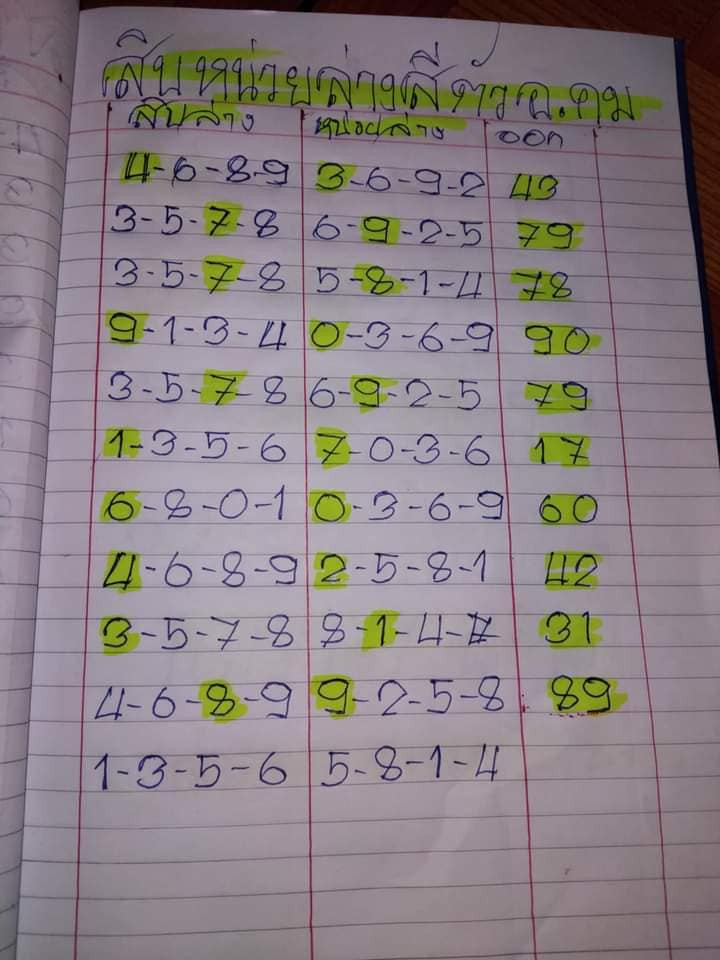 สิบหน่วยล่างสี่ตัว อ.คม
สิบล่าง หน่วยล่าง ออก
4-6-8-9 3-6-9-2 43
3-5-7-8 6-9-2-5 79
3-5-7-8 5-8-1-4 78
9-1-3-4 0-3-6-9 90
3-5-7-8 6-9-2-5 79
1-3-5-6 7-0-3-6 17
6-8-0-1 0-3-6-9 60
4-6-8-9 2-5-8-1 42
3-5-7-8 8-1-4-7 31
4-6-8-9 9-2-5-8 89
1-3-5-6 5-8-1-4